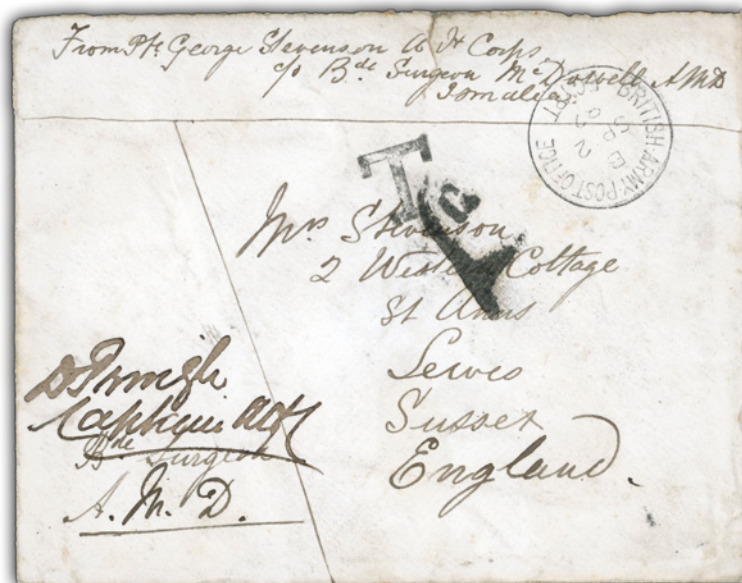 From Pte George Stevenson A H Corps
c/o Bde Surgeon McDowell AMD
Ismailia
BRITISH ARMY POST OFFICE EGYPT
B
SP 2
82
T
Mrs Stevenson
2 Western Cottage
St Anns
Lewes
Sussex
England.
Captain
Bde Surgeon
A. M. D.